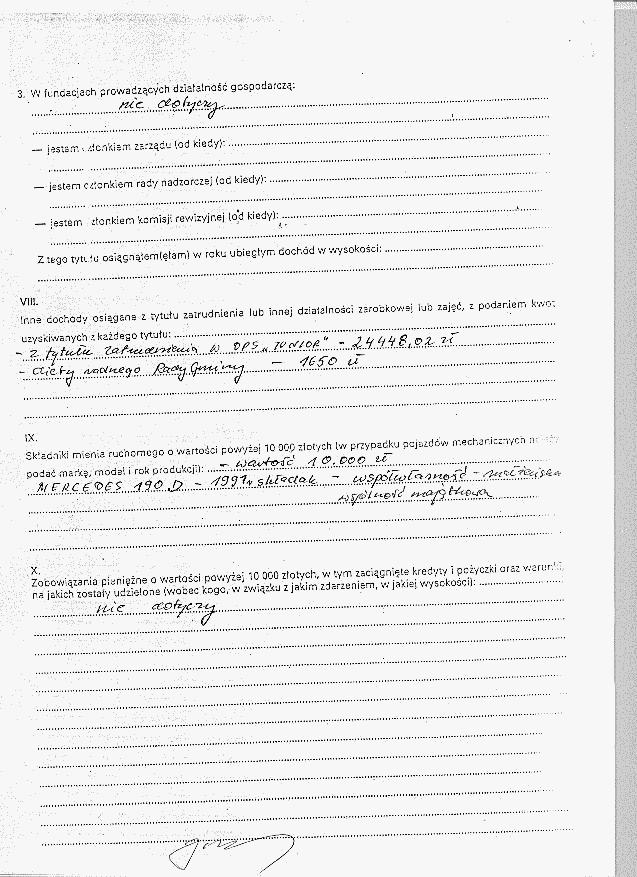 3. W fundacjach prowadzących działalność gospodarczą:
nie dotyczy
— jestem członkiem zarządu (od kiedy):
— jestem członkiem rady nadzorczej (od kiedy):
— jestem członkiem komisji rewizyjnej (od kiedy):
Z tego tytułu osiągnąłem(ęłam) w roku ubiegłym dochód w wysokości:
VIII.
Inne dochody osiągane z tytułu zatrudnienia lub innej działalności zarobkowej lub zajęć, z podaniem kwot
uzyskiwanych z każdego tytułu:
- z tytułu zatrudnienia w OPS „JUNIOR" - 24448,02 zł
- diety radnego Rady Gminy - 1650 zł
IX.
Składniki mienia ruchomego o wartości powyżej 10 000 złotych (w przypadku pojazdów mechanicznych
podać markę, model i rok produkcji): - wartość 10.000 zł
MERCEDES 190 D - 1991r składak - współwłasność - małżeńska
wspólność majątkowa
X.
Zobowiązania pieniężne o wartości powyżej 10 000 złotych, w tym zaciągnięte kredyty i pożyczki oraz warunki,
na jakich zostały udzielone (wobec kogo, w związku z jakim zdarzeniem, w jakiej wysokości):
nie dotyczy